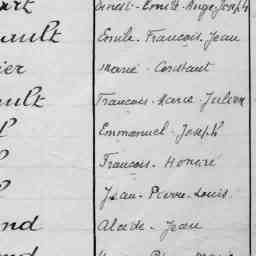 Ernest - Emile - Ange-Joseph
ault Emile - François - Jean
ier Marie - Constant
ault François - Marie - Julien
Emmanuel - Joseph
François - Honoré
Jean - Pierre - Louis
nd Alcide - Jean
nd